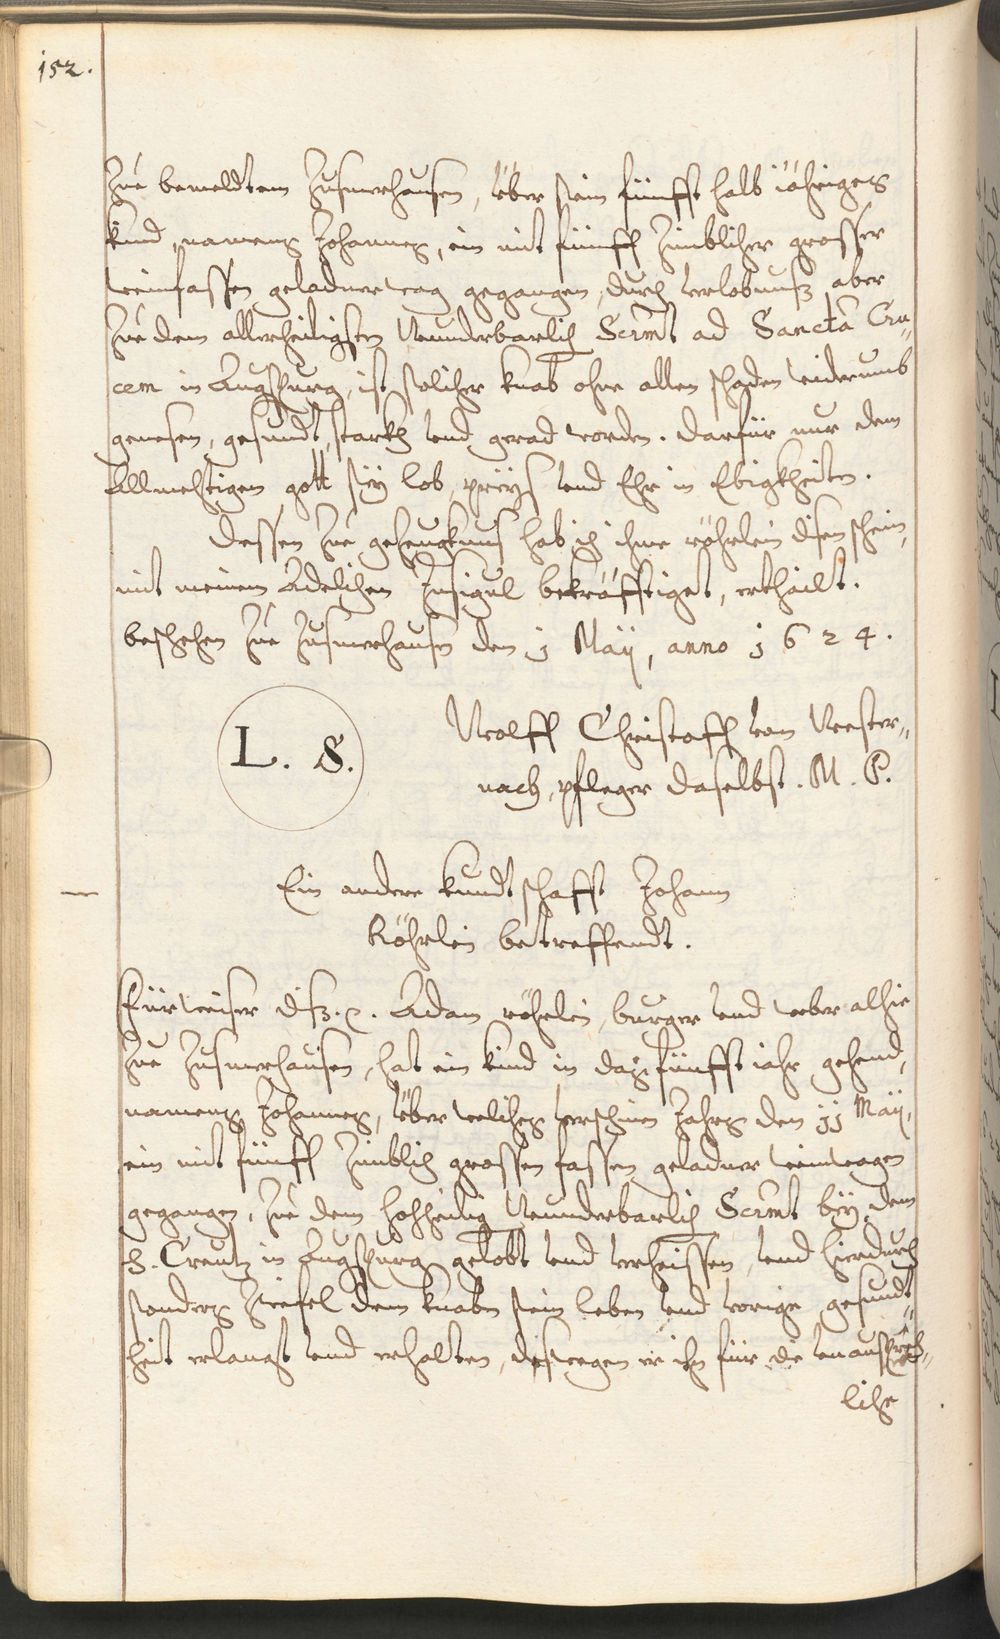 152.
Zue bemeldtem Zusmerhausen, über sein fünfft halb iähriges
kind, namens Johannes, ein mit fünff zimblicher grosser
weinfassen geladner wag gegangen, durch verlobnuß aber
zue dem allerheiligsten Wunderbarlich Scrmt ad Sanctã Cru-
cem in Augspurg, ist solicher knab ohne allen schaden widerumb
genesen, gesundt, starckh vnd gerad worden. Darfür nur dem
Allmechtigen gott sey lob, preys vnd Ehr in Ebigkheiten.
Dessen zue gezeugknus hab ich ihme röhrlein disen schein,
mit meinem Adelichen Insigul bekräfftiget, erthailt.
beschehen zue Zusmerhausen den j Maij, anno j624.
L. S.
Wolff Christoff von Wester„
nach, pfleger daselbst. M. P.
Ein andere kundtschafft Johann
Röhrlein betreffendt.
Fürweiser diß. Adam röhrlein, burger vnd weber alhie
zue Zusmerhausen, hat ein kind in das fünfft iahr gehend,
namens Johannes, über welches verschinen Jahrs den jj Maij,
ein mit fünff zimblich grossen fassen geladner weinwagen
gegangen, zue dem hochheilig Wunderbarlich Scrmt bey dem
H. Creutz in Augspurg gelobt vnd verheissen, vnd hierdurch
sonders zweifel dem knaben sein leben vnd vorige gesundt„
heit erlangt vnd erhalten, deßwegen er ihn für die vnaussprech„
liche